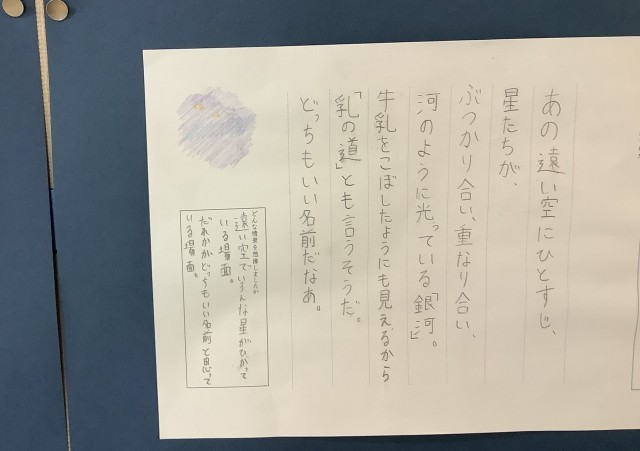 あの遠い空にひとすじ、
星たちが、
ぶつかり合い、重なり合い、
河のように光っている「銀河」。
牛乳をこぼしたようにも見えるから
「乳の道」とも言うそうだ。
どっちもいい名前だなあ。
どんな情景を想像しましたか
遠い空でいろんな星がひかって
いる場面。
だれかがどっちもいい名前と思って
いる場面。